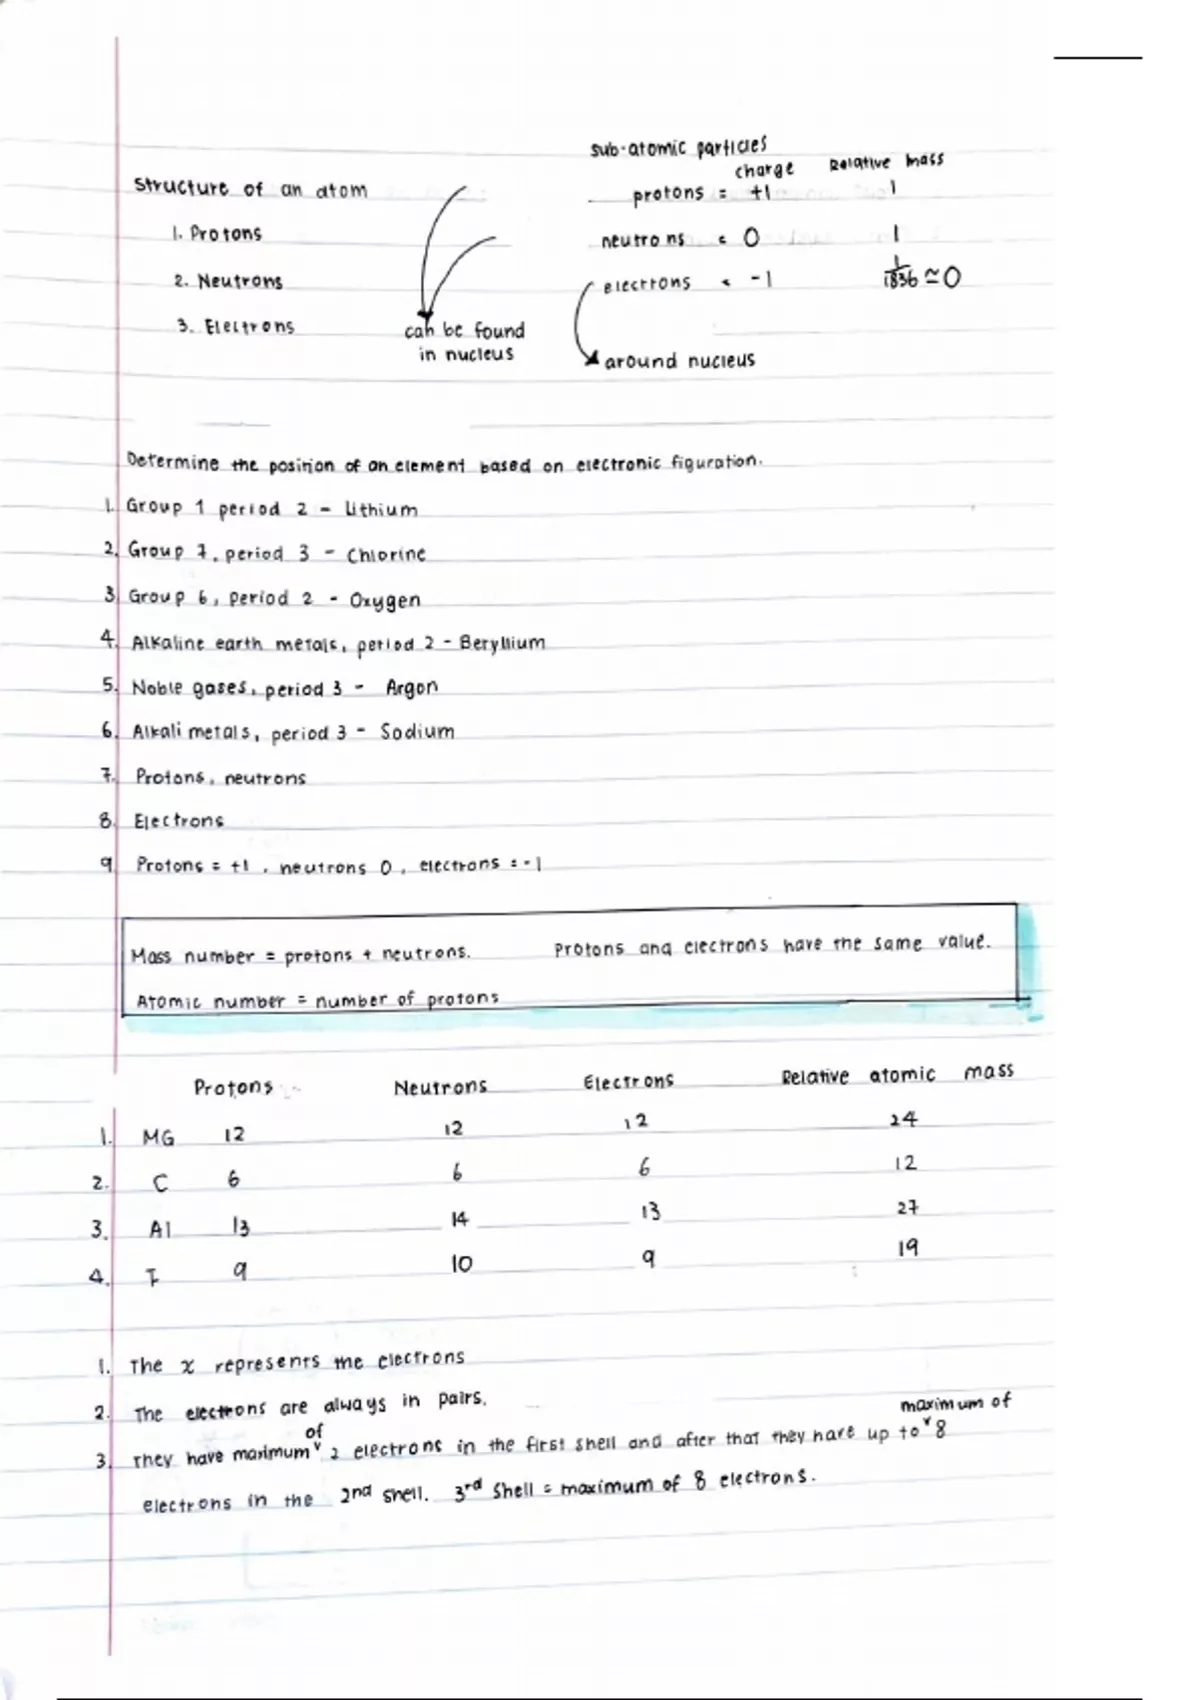 sub-atomic particles
charge Relative mass
Structure of an atom
protons = +1 1
1. Protons
neutrons = 0 1
2. Neutrons
electrons = -1 1/1836 ≃ 0
3. Electrons
can be found
in nucleus
around nucleus
Determine the position of an element based on electronic figuration.
1. Group 1 period 2 - Lithium
2. Group 7, period 3 - Chlorine
3. Group 6, period 2 - Oxygen
4. Alkaline earth metals, period 2 - Beryllium
5. Noble gases, period 3 - Argon
6. Alkali metals, period 3 - Sodium
7. Protons, neutrons
8. Electrons
9. Protons = +1, neutrons 0, electrons = -1
Mass number = protons + neutrons. Protons and electrons have the same value.
Atomic number = number of protons
Protons Neutrons Electrons Relative atomic mass
1. MG 12 12 12 24
2. C 6 6 6 12
3. Al 13 14 13 27
4. F 9 10 9 19
1. The x represents the electrons
2. The electrons are always in pairs.
3. They have maximum of 2 electrons in the first shell and after that they have up to maximum of 8
electrons in the 2nd shell. 3rd Shell = maximum of 8 electrons.